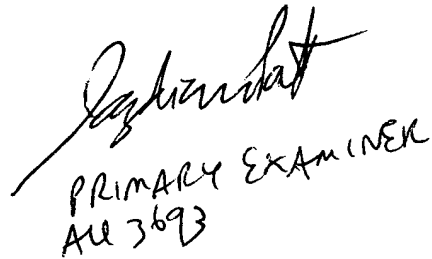 PRIMARY EXAMINER
AU 3693